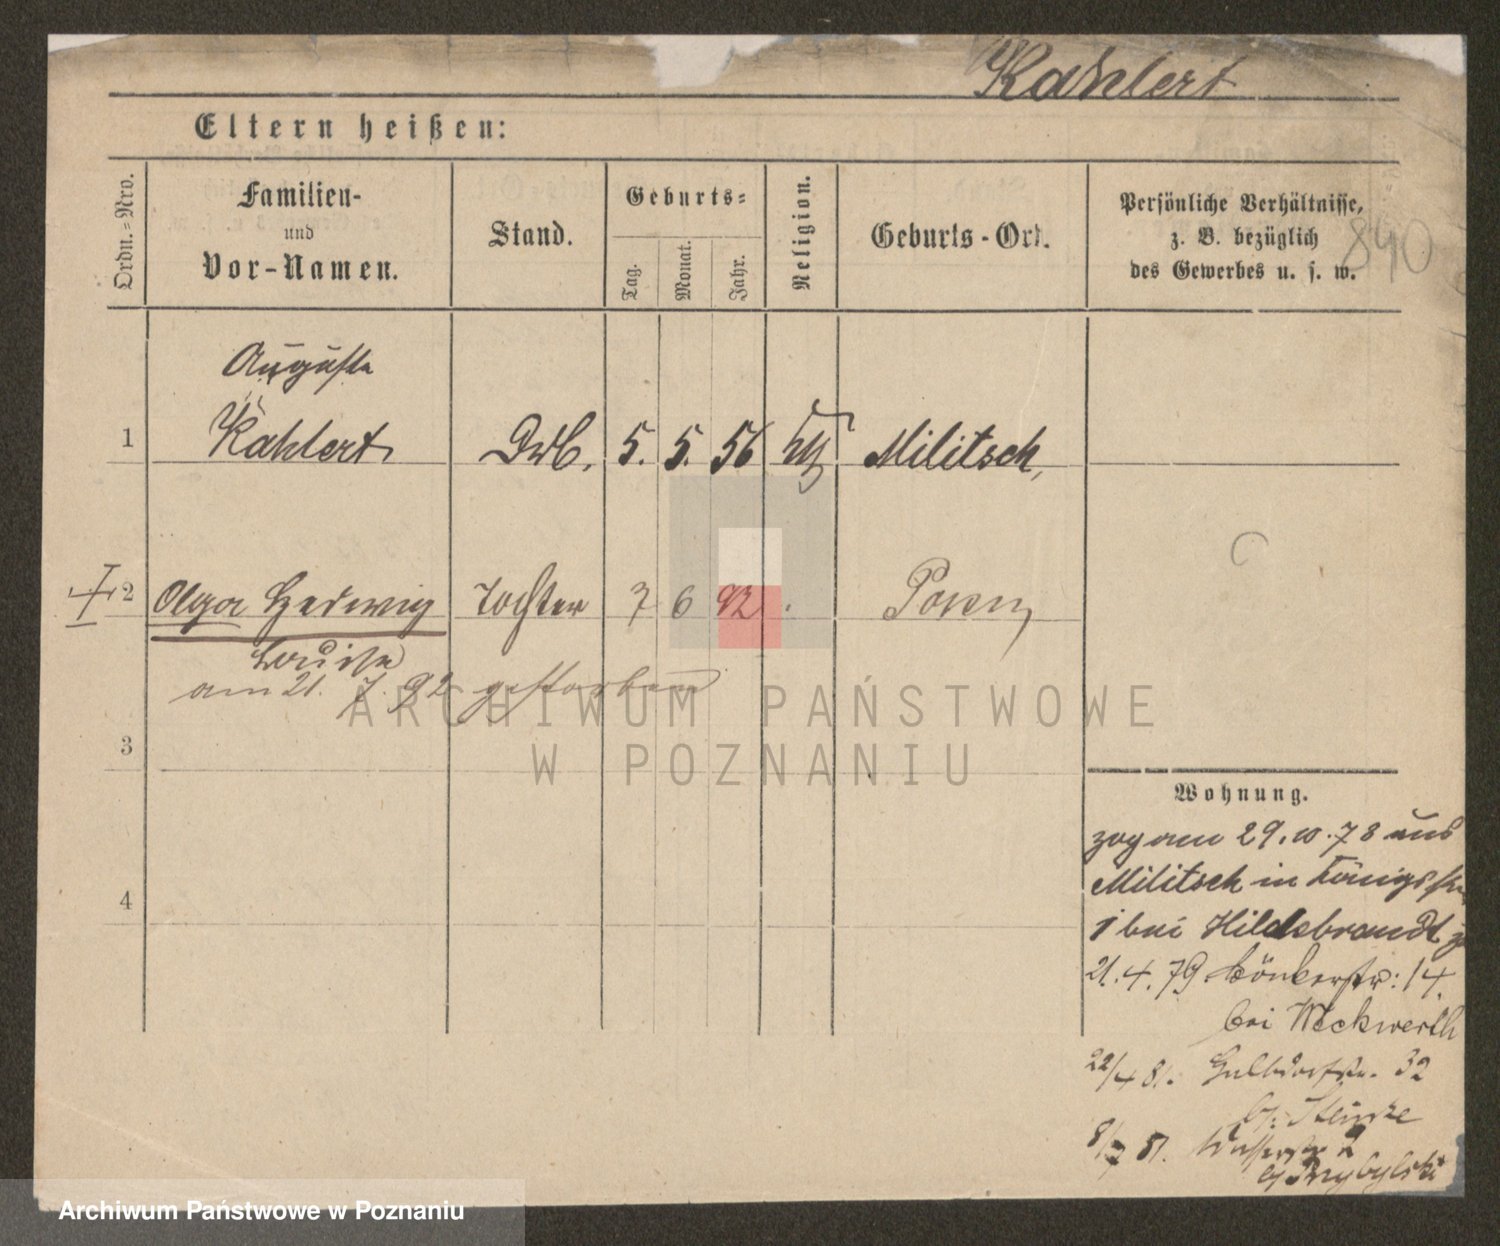 Kahlert
Eltern heißen:
Ordn.-Nro.
Familien-
und
Vor-Namen.
Stand.
Geburts-
Tag.
Monat.
Jahr.
Religion.
Geburts-Ort.
Persönliche Verhältnisse,
z. B. bezüglich
des Gewerbes u. s. w.
890
Auguste
1 Kahlert 5. 5. 56 Militsch,
2 Olga Hedwig Tochter 7 6 92 Posen
Louise
am 21. 7. 92 gestorben
3
4
Wohnung.
zog am 29. 10. 78 aus
Militsch in Königsstr
1 bei Hildebrandt
21. 4. 79 14.
bei Weckwerth
22/4 81. Halbdorfstr. 32
8/7 81. Wasserstr 2
Przybylski
ARCHIWUM PAŃSTWOWE
W POZNANIU
Archiwum Państwowe w Poznaniu